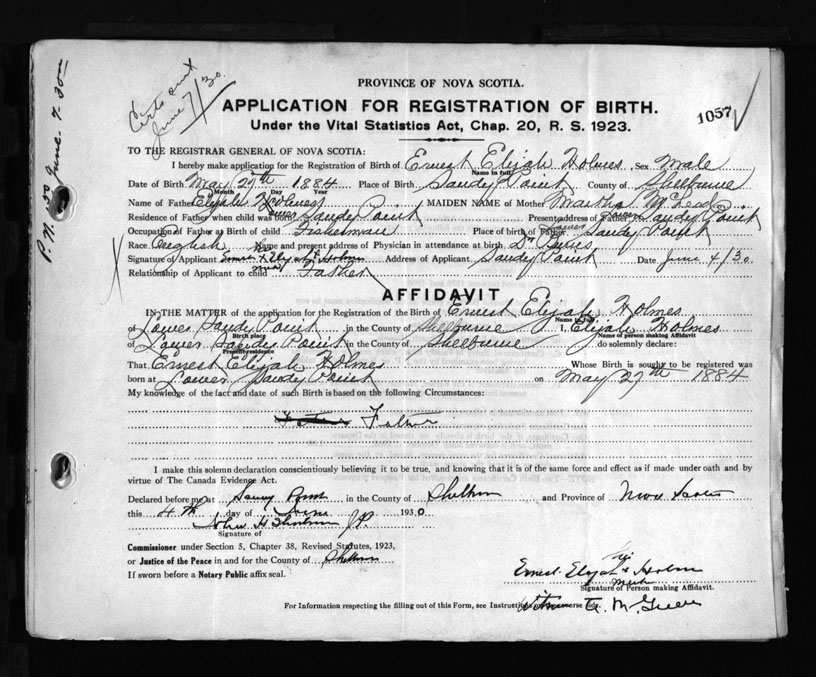 Certs out
June 7/30.
P.N. 50 June. 7. 30
PROVINCE OF NOVA SCOTIA.
APPLICATION FOR REGISTRATION OF BIRTH.
1057
Under the Vital Statistics Act, Chap. 20, R. S. 1923.
TO THE REGISTRAR GENERAL OF NOVA SCOTIA:
I hereby make application for the Registration of Birth of Ernest Elijah Holmes Sex Male
Name in full
Date of Birth May 27th 1884 Place of Birth Sandy Point County of Shelburne
Month Day Year
Name of Father Elijah Holmes MAIDEN NAME of Mother Martha McLead
Residence of Father when child was born Lower Sandy Point Present address of Father Lower Sandy Point
Occupation of Father at Birth of Fisherman Place of birth of Father Lower Sandy Point
Race English Name and present address of Physician in attendance at birth Dr
Signature of Applicant Ernest X Elijah Holmes Address of Applicant Sandy Point Date June 4/30.
Relationship of Applicant to child Father
AFFIDAVIT
IN THE MATTER of the application for the Registration of the Birth of Ernest Elijah Holmes
Name in full
of Lower Sandy Point in the County of Shelburne I, Elijah Holmes
Birth place Name of person making Affidavit
of Lower Sandy Point in the County of Shelburne do solemnly declare:
Present residence
That Ernest Elijah Holmes Whose Birth is sought to be registered was
born at Lower Sandy Point on May 27th 1884
My knowledge of the fact and date of such Birth is based on the following Circumstances:
Father
I make this solemn declaration conscientiously believing it to be true, and knowing that it is of the same force and effect as if made under oath and by
virtue of The Canada Evidence Act.
Declared before me at Sandy Point in the County of Shelburne and Province of Nova Scotia
this 4th day of June 1930
John H J.P.
Signature of
Commissioner under Section 5, Chapter 38, Revised Statutes, 1923,
or Justice of the Peace in and for the County of Shelburne
If sworn before a Notary Public affix seal.
his
Ernest Elijah x Holmes
mark
Signature of Person making Affidavit.
For Information respecting the filling out of this Form, see Instructions on reverse
Witness